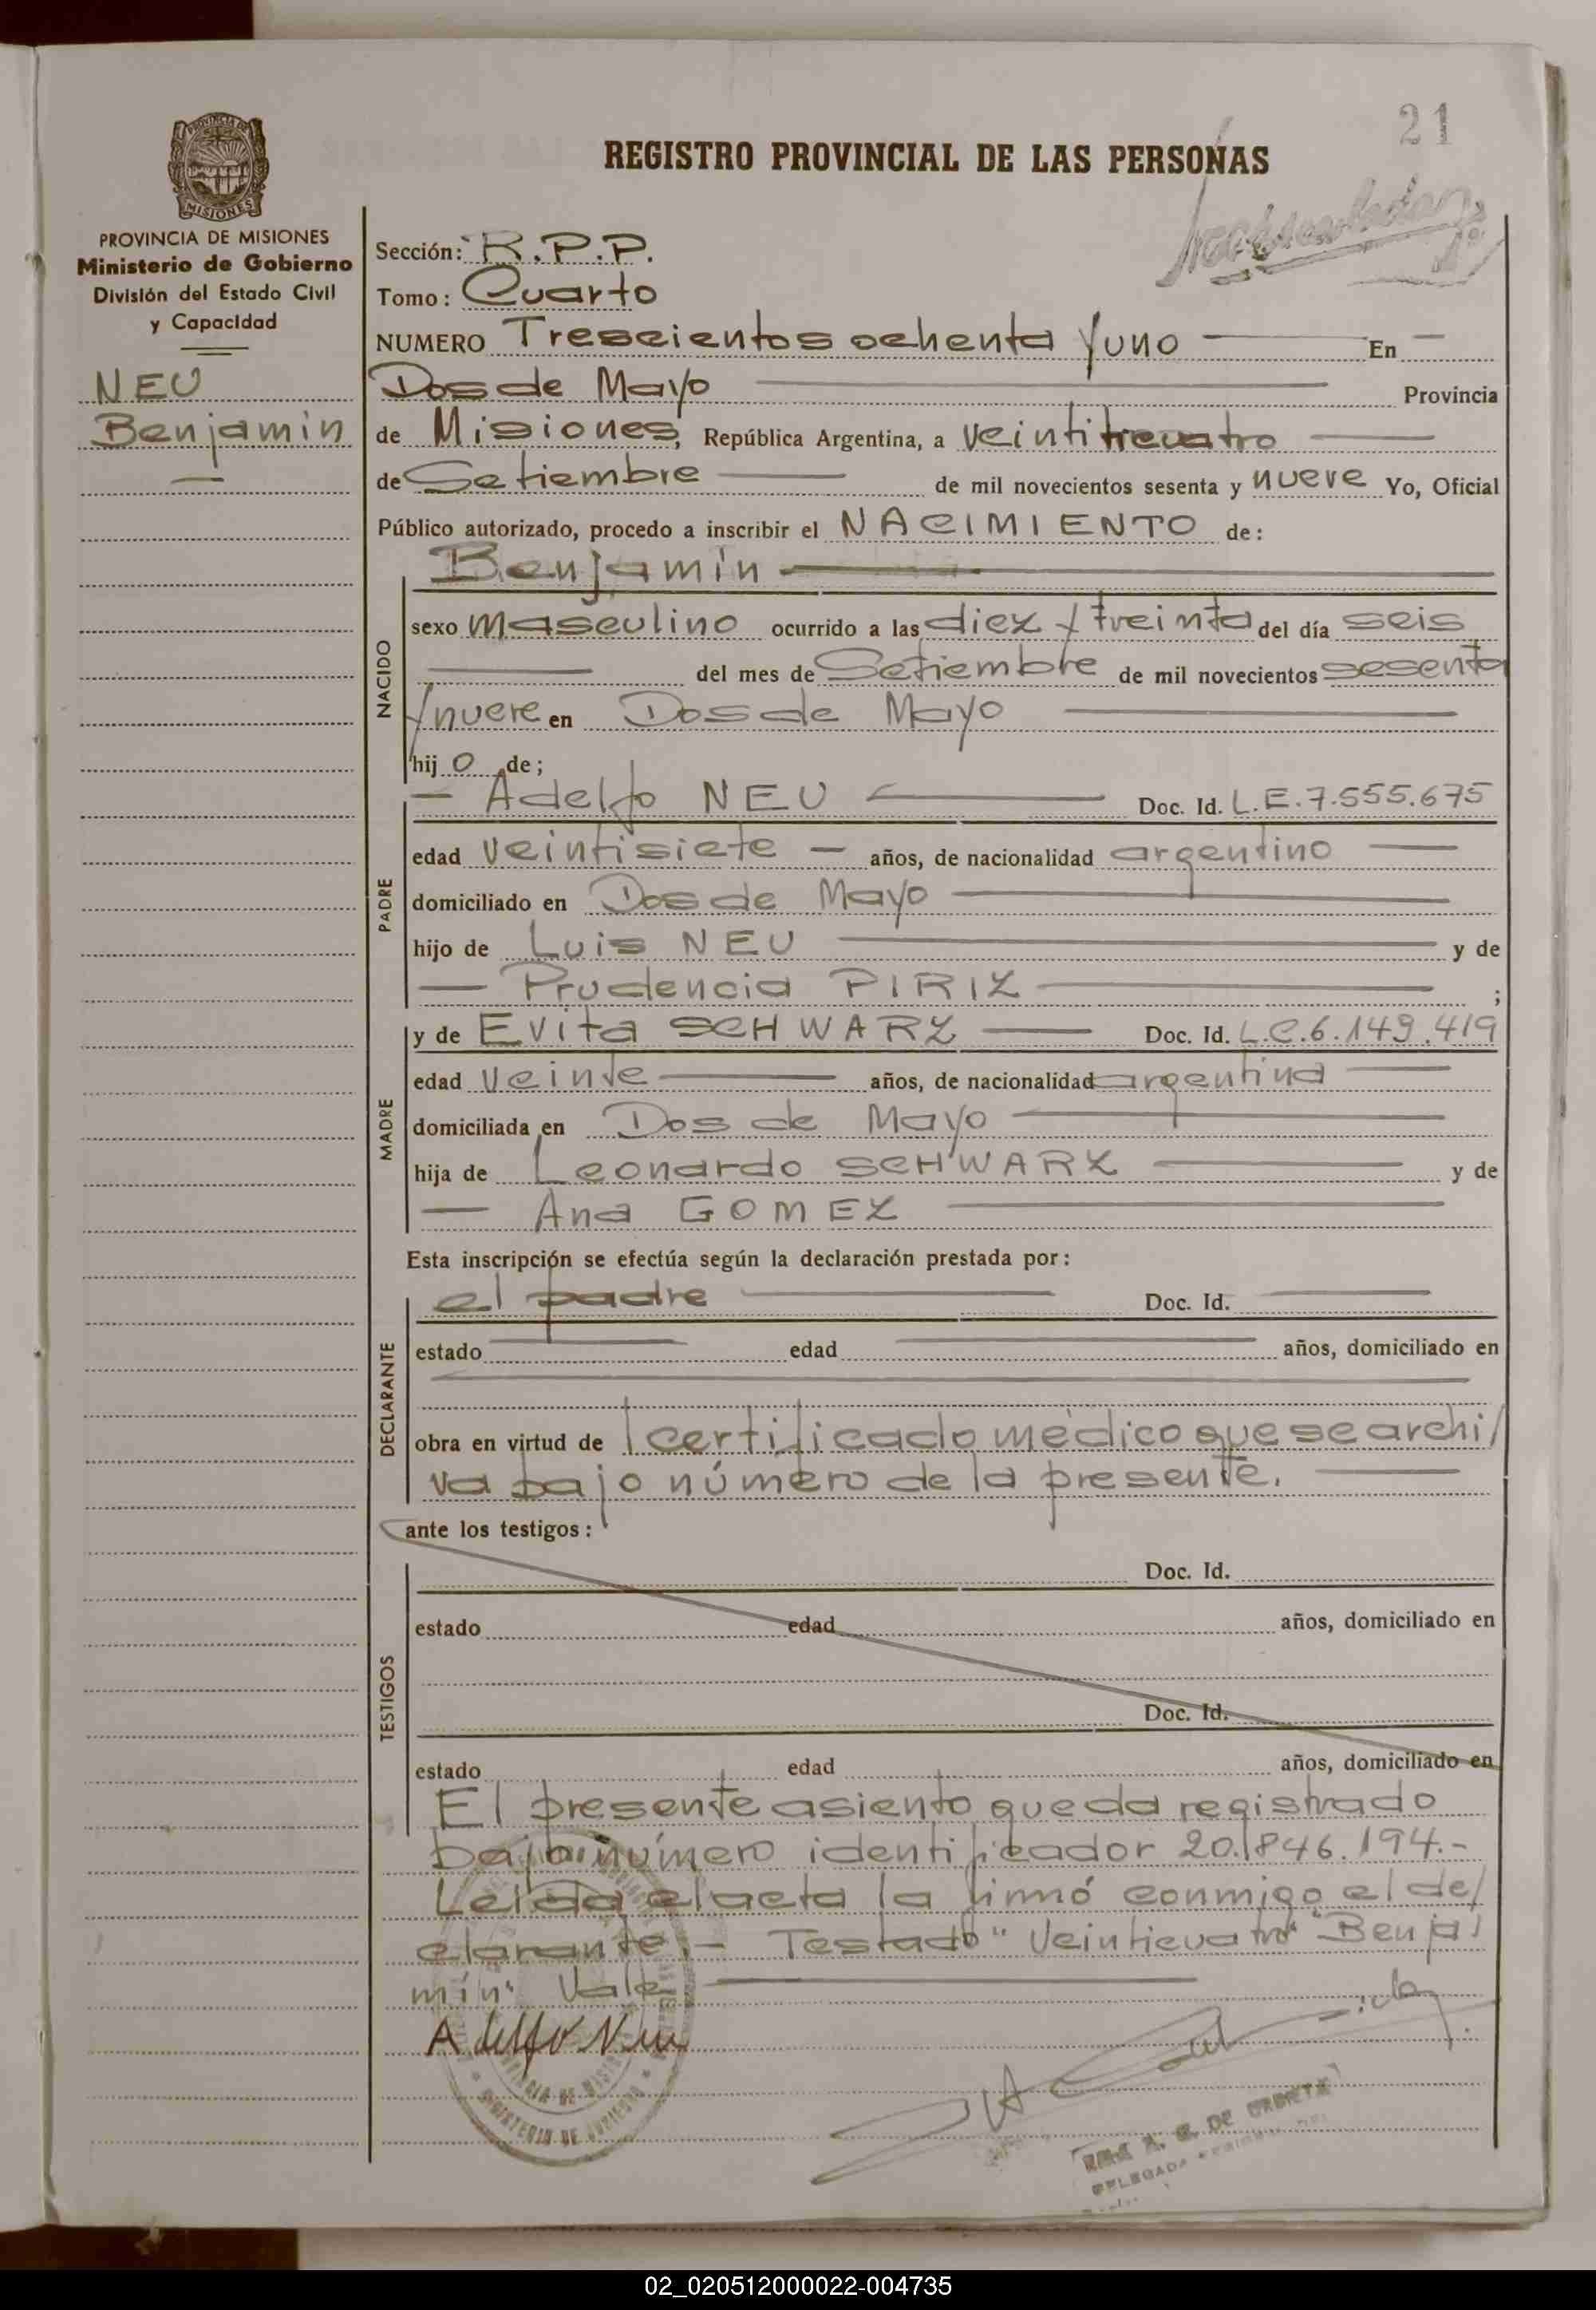 21
REGISTRO PROVINCIAL DE LAS PERSONAS
PROVINCIA DE
MISIONES
PROVINCIA DE MISIONES
Ministerio de Gobierno
División del Estado Civil
y Capacidad
NEU
Benjamín
Sección: R.P.P.
Tomo: Cuarto
NUMERO Trescientos ochenta y uno En
Dos de Mayo Provincia
de Misiones, República Argentina, a
de Setiembre de mil novecientos sesenta y nueve Yo, Oficial
Público autorizado, procedo a inscribir el NACIMIENTO de:
Benjamín
NACIDO
sexo masculino ocurrido a las diez y treinta del día seis
del mes de Setiembre de mil novecientos sesenta
y nueve en Dos de Mayo
hijo de;
PADRE
Adelfo NEU Doc. Id. L.E. 7.555.675
edad veintisiete años, de nacionalidad argentino
domiciliado en Dos de Mayo
hijo de Luis NEU y de
Prudencia PIRIZ ;
MADRE
y de Evita SCHWARZ Doc. Id. L.C. 6.149.419
edad veinte años, de nacionalidad argentina
domiciliada en Dos de Mayo
hija de Leonardo SCHWARZ y de
Ana GOMEZ
Esta inscripción se efectúa según la declaración prestada por:
DECLARANTE
el padre Doc. Id.
estado edad años, domiciliado en
obra en virtud de certificado médico que se archi/
va bajo número de la presente.
ante los testigos:
TESTIGOS
Doc. Id.
estado edad años, domiciliado en
Doc. Id.
estado edad años, domiciliado en
El presente asiento queda registrado
bajo número identificador 20.846.194.-
Leída el acta la firmó conmigo el de/
clarante.- Testado "Veinticuatro" "Benja/
mín" Vale
Adelfo Neu
02_020512000022-004735